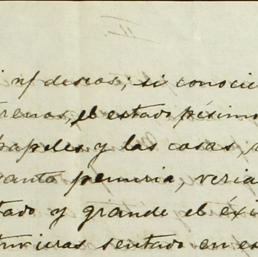 II.
nf deseos; si conocie
trenos, el estado pésimo
papeles y las casas,
tanta penuria, veria
tado y grande el éxi
tuvieras sentado en es